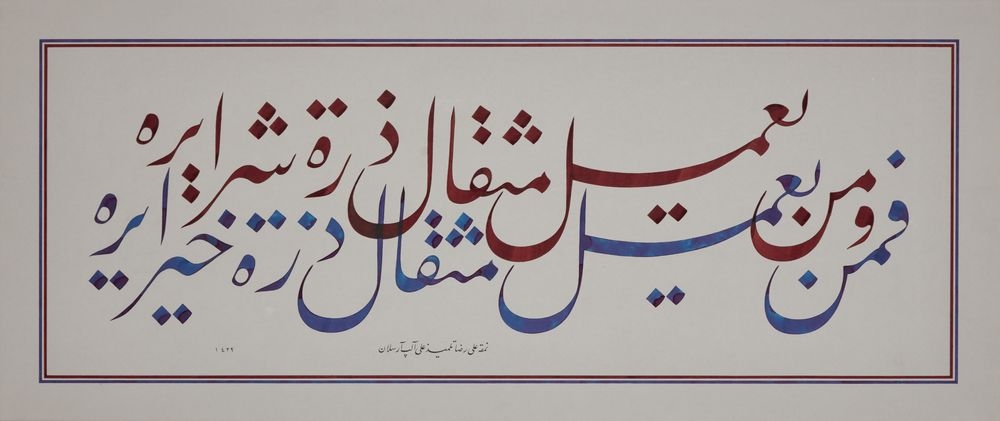 فمن يعمل مثقال ذرة خيرا يره
ومن يعمل مثقال ذرة شرا يره
نمقه علی رضا تلمیذ علی آلپ آرسلان
١٤٢٩